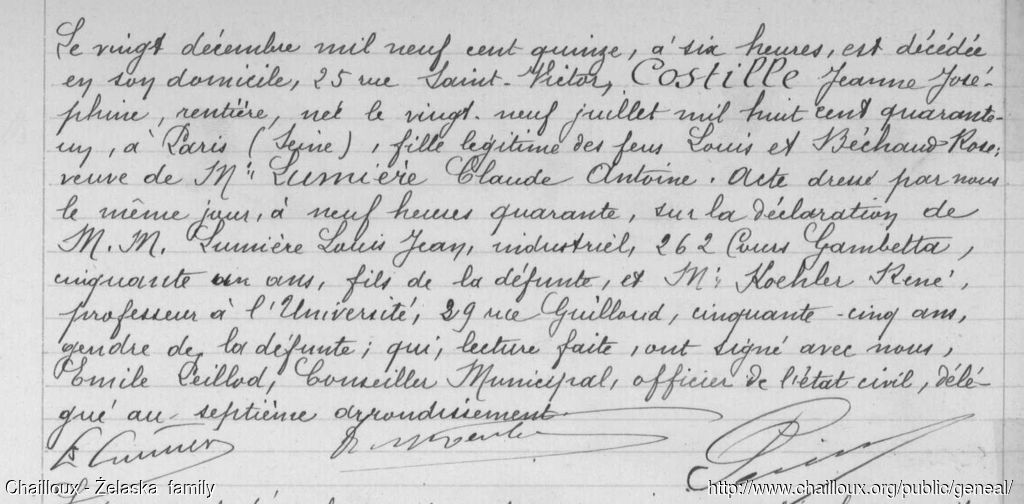 Le vingt décembre mil neuf cent quinze, à six heures, est décédée
en son domicile, 25 rue Saint-Victor, Costille Jeanne José-
phine, rentière, née le vingt-neuf juillet mil huit cent quarante-
un, à Paris (Seine), fille légitime des feus Louis et Béchaud Rose;
veuve de Mr Lumière Claude Antoine. Acte dressé par nous
le même jour, à neuf heures quarante, sur la déclaration de
M.M. Lumière Louis Jean, industriel, 262 Cours Gambetta,
cinquante un ans, fils de la défunte, et Mr Koehler René,
professeur à l'Université, 29 rue Guilloud, cinquante-cinq ans,
gendre de la défunte; qui, lecture faite, ont signé avec nous,
Emile Peillod, Conseiller Municipal, officier de l'état civil, délé-
gué au septième arrondissement
Chailloux - Želaska family
http://www.chailloux.org/public/geneal/